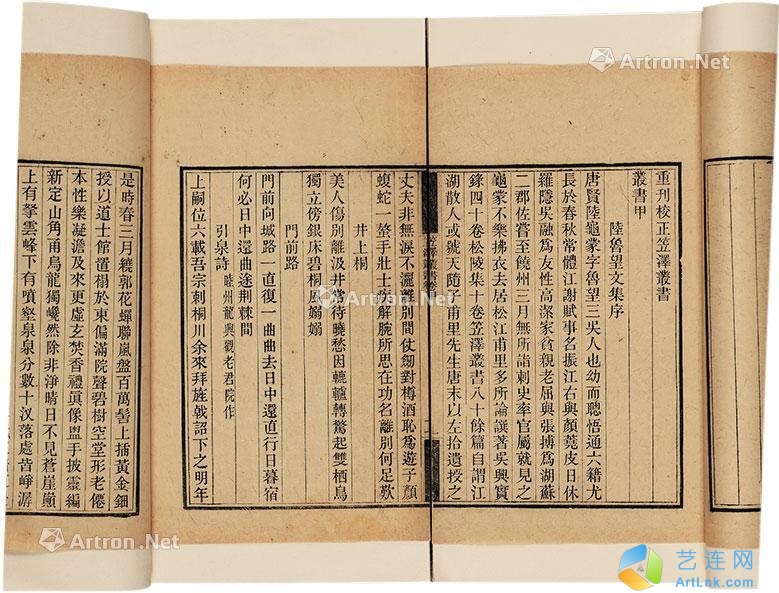 重刊校正笠澤叢書
叢書甲
陸魯望文集序
唐賢陸龜蒙字魯望三吳人也幼而聰悟通六籍尤
長於春秋常體江謝賦事名振江右與顏蕘皮日休
羅隱吳融為友性高潔家貧親老屈與張搏為湖蘇
二郡佐嘗至饒州三月無所詣刺史率官屬就見之
龜蒙不樂拂衣去居松江甫里多所論譔著吳興實
錄四十卷松陵集十卷笠澤叢書八十餘篇自謂江
湖散人或號天隨子甫里先生唐末以左拾遺授之
笠澤叢書卷
丈夫非無淚不灑離別間仗劒對樽酒恥為遊子顏
蝮蛇一螫手壯士疾解腕所思在功名離別何足歎
井上桐
美人傷別離汲井常待曉愁因轆轤轉驚起雙栖鳥
獨立傍銀床碧桐風嫋嫋
門前路
門前向城路一直復一曲曲去日中還直行日暮宿
何必日中還曲途荆棘間
引泉詩 睦州龍興觀老君院作
上嗣位六載吾宗刺桐川余來拜旌戟詔下之明年
是時春三月繞郭花蟬聯嵐盤百萬髻上插黃金鈿
授以道士館置榻於東偏滿院聲碧樹空堂形老僊
本性樂凝澹及來更虛玄焚香禮真像盥手披靈編
新定山角甬烏龍獨巉然除非淨晴日不見蒼崖巔
上有拏雲峰下有噴壑泉泉分數十汊落處皆崢潺
Artron.Net
Artron.Net
Artron.Net
Artron.Net
Artron.Net
艺连网
ArtLnk.com